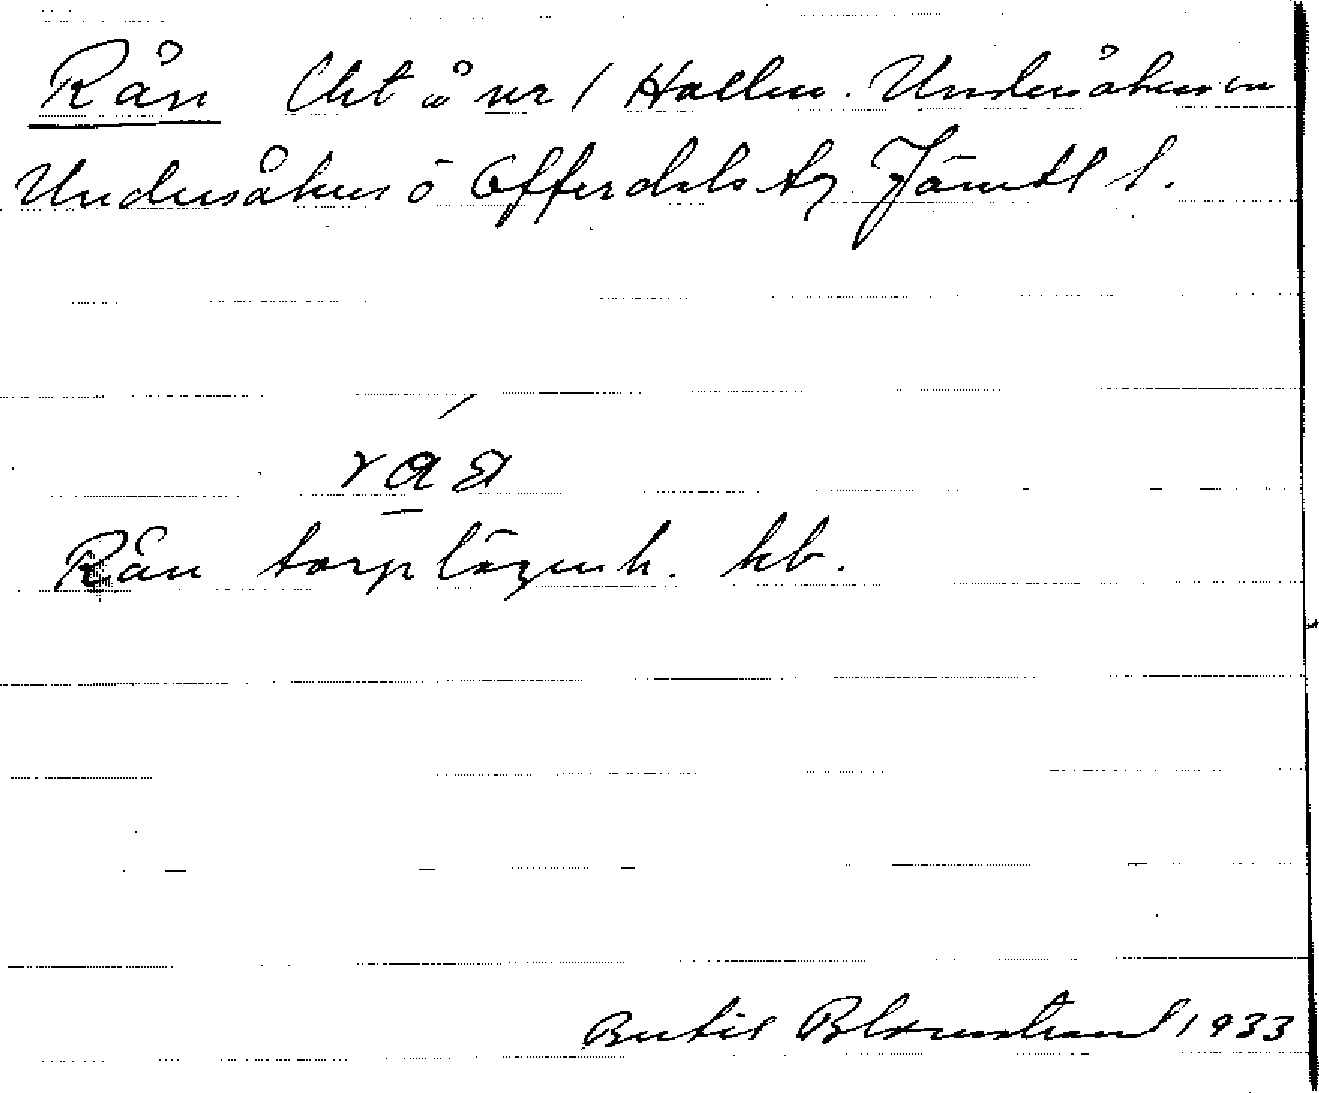 Rån Cht å nr 1 Hallen. Undersåkers sn
Undersåkers o Offerdals tg Jämtl l.
Rån torp lägenh. kb.
Bertil Blomstrand 1933